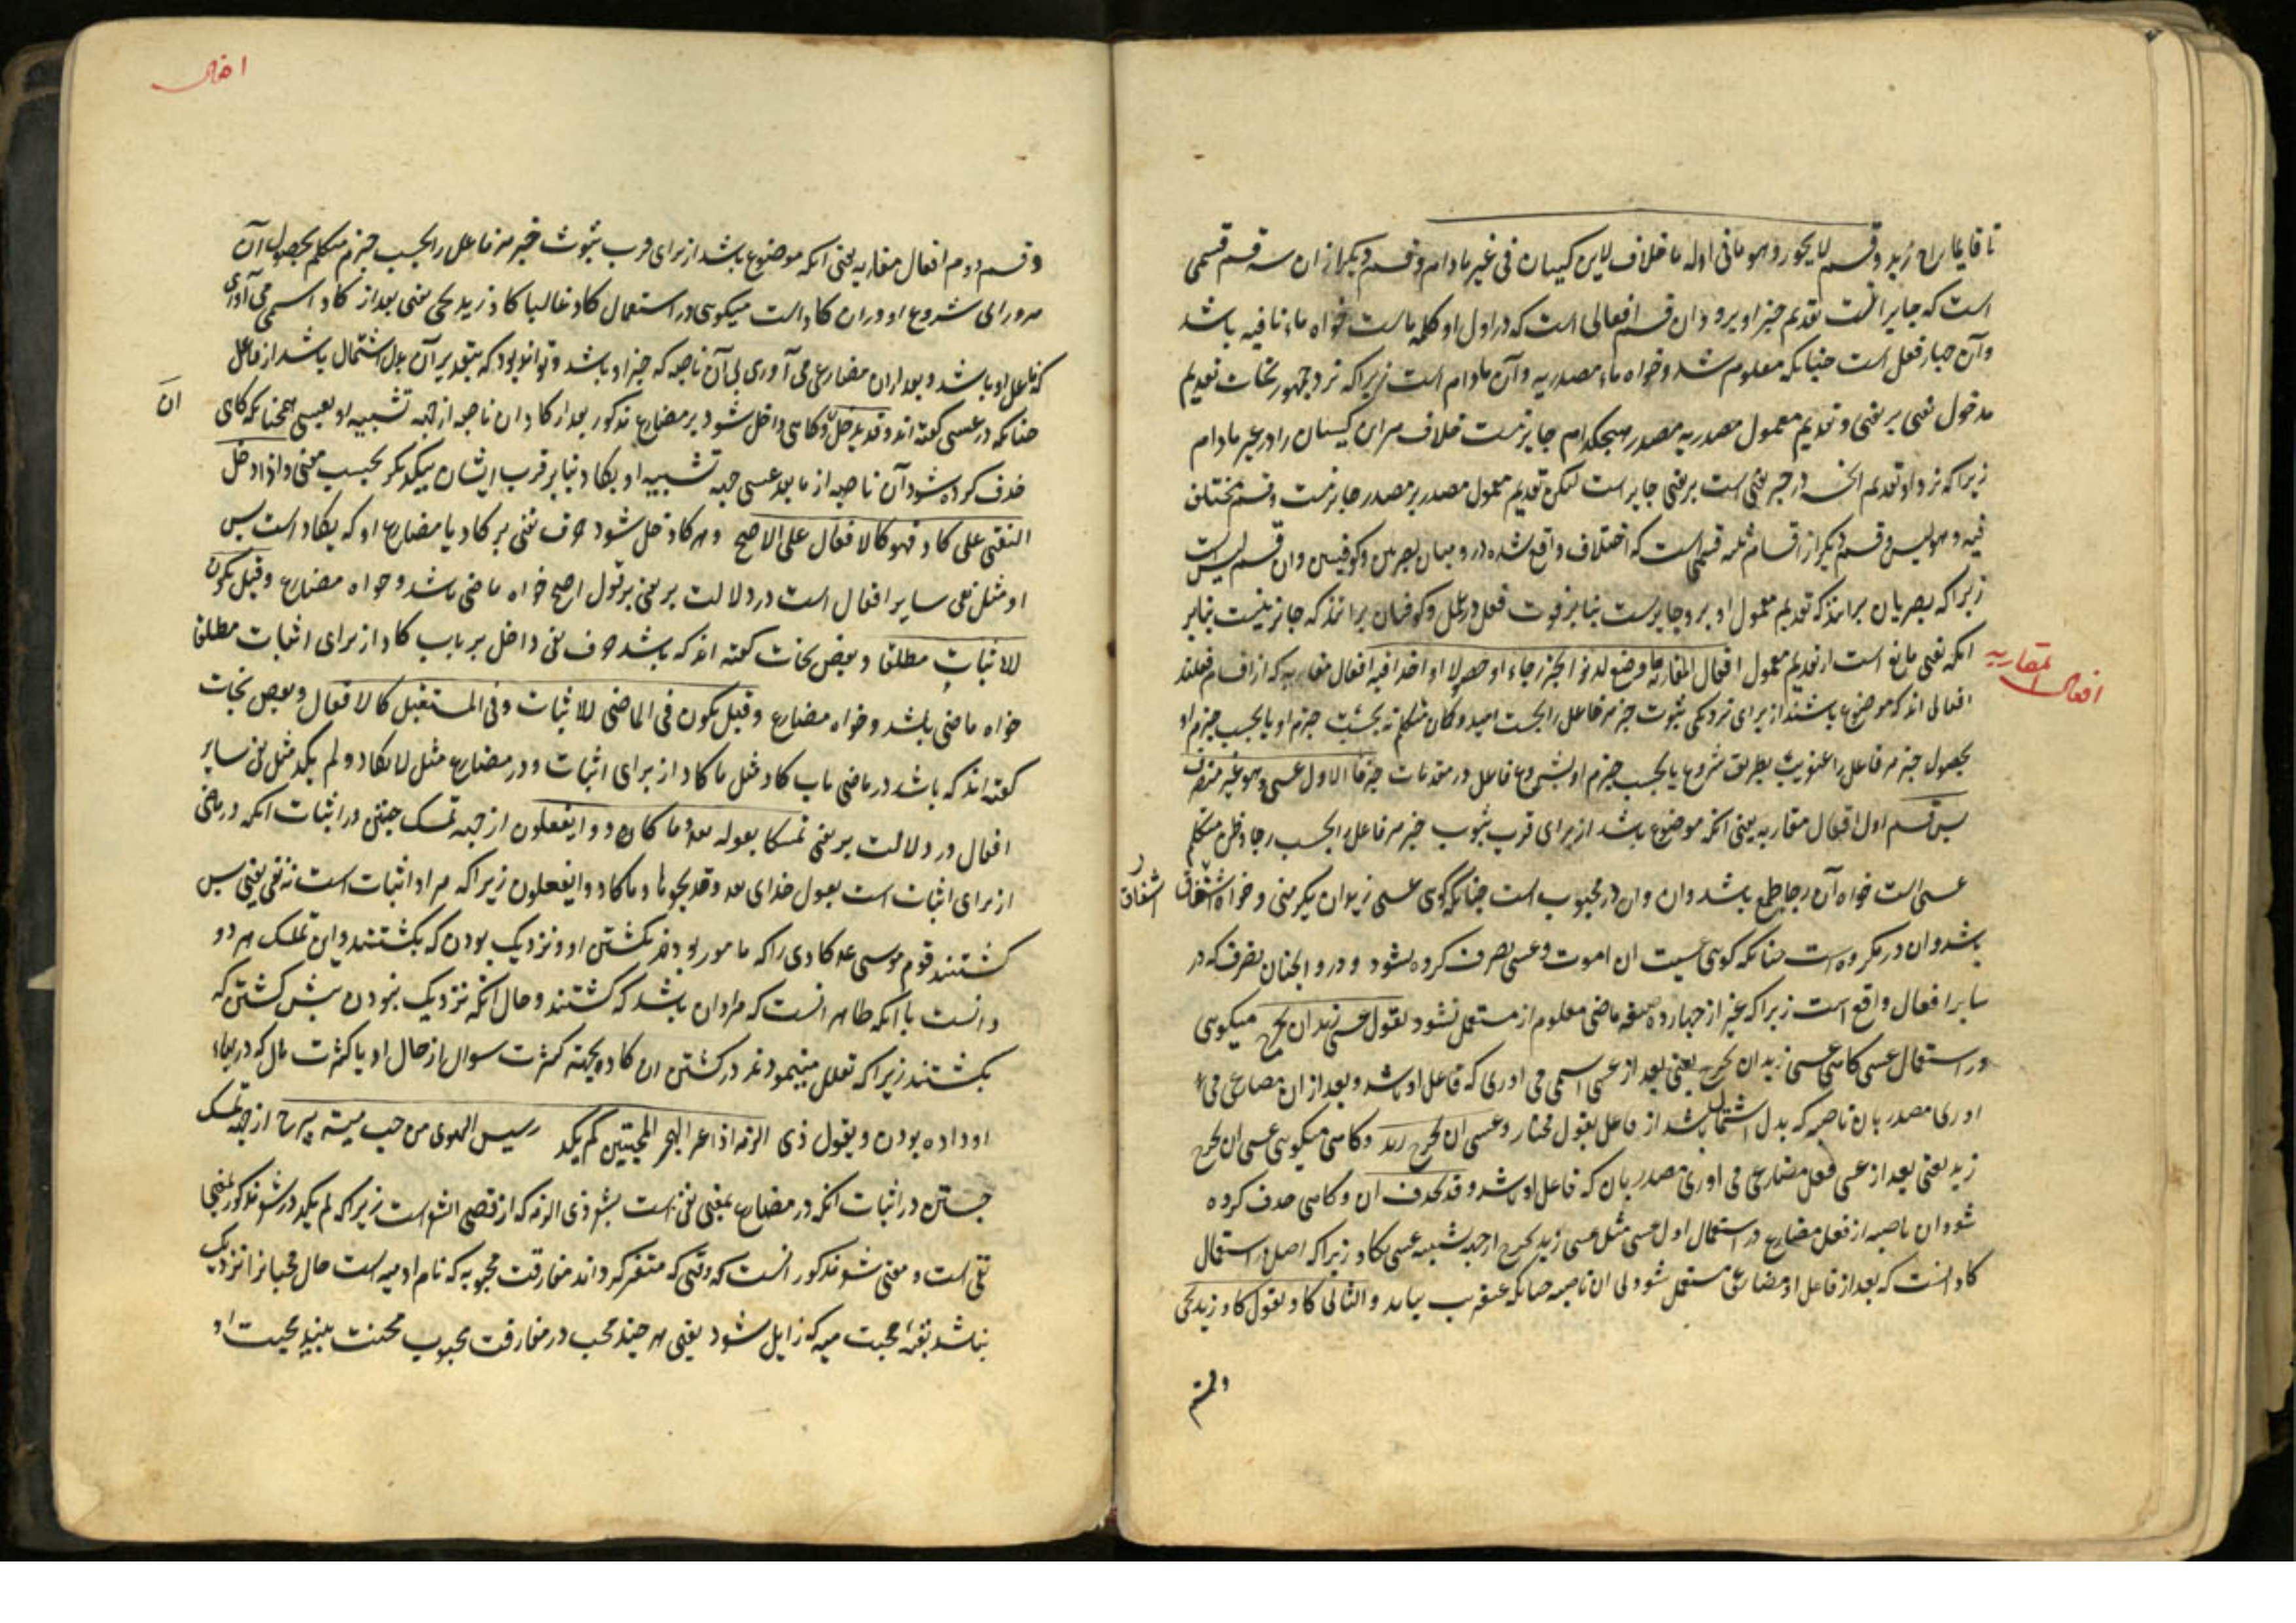 تا قایما راح زید و قسم لا یجوز و هو ما فی اوله ما خلافا لابن کیسان فی غیر مادام و قسم دیکر از ان سه قسم قسمی
است که جایز نیست تقدیم خبر او برو و ان قسم افعالی است که در اول او کلمه ماست خواه ماء نافیه باشد
و آن چهار فعل است چنانکه معلوم شد و خواه ماء مصدریه و آن مادام است زیرا که نزد جمهور نحات تقدیم
مدخول نفی بر نفی و تقدیم معمول مصدر بر مصدر هیچکدام جایز نیست خلاف مر ابن کیسان را در غیر مادام
زیرا که نزد او تقدیم انچه در خبر نفی است بر نفی جایز است لیکن تقدیم معمول مصدر بر مصدر جایز نیست و قسم مختلف
فیه و هو لیس و قسم دیکر از اقسام ثلثه قسمی است که اختلاف واقع شده درو میان بصریین و کوفیین و ان قسم لیس است
زیرا که بصریان برانند که تقدیم معمول او برو جایزست بنا بر قوت فعل در عمل و کوفیان برانند که جایز نیست بنا بر
انکه نفی مانع است از تقدیم معمول افعال المقاربة ما وضع لدنو الخبر رجاء او حصولا او اخذا فیه افعال مقاربه که از اقسام فعلند
افعالی اند که موضوع باشند از برای نزدیکی ثبوت خبر مر فاعل را بحسب امید و کمان متکلم نه بحسب جزم او یا بحسب جزم او
بحصول خبر مر فاعل را بی بطریق شروع یا بحسب جزم او بشروع فاعل در مقدمات خبر فالاول عسی و هو غیر متصرف
پس قسم اول افعال مقاربه یعنی انکه موضوع باشد از برای قرب ثبوت خبر مر فاعل را بحسب رجا و ظن متکلم
عسی است خواه آن رجا طمع باشد و ان در محبوب است چنانکه کوی عسی زید ان یکرمنی و خواه اشفاق
باشد و ان در مکروه است چنانکه کوی عسیت ان اموت و عسی تصرف کرده نشود و درو انچنان تصرف که در
سایر افعال واقع است زیرا که غیر از چهارده صیغه ماضی معلوم ازو مستعمل نشود تقول عسی زید ان یخرج میکوی
در استعمال عسی کاهی عسی زید ان یخرج یعنی بعد از عسی اسمی می اوری که فاعل او باشد و بعد از ان مضارعی می
اوری مصدر بان ناصبه که بدل اشتمال باشد از فاعل بقول مختار و عسی ان یخرج زید و کاهی میکوی عسی ان یخرج
زید یعنی بعد از عسی فعل مضارعی می اوری مصدر بان که فاعل او باشد و قد یحذف ان و کاهی حذف کرده
شود ان ناصبه از فعل مضارع در استعمال اول عسی مثل عسی زید یخرج از جهة تشبیه عسی بکاد زیرا که اصل در استعمال
کاد انست که بعد از فاعل او مضارعی مستعمل شود بی ان ناصبه چنانکه عنقریب بیاید و الثانی کاد تقول کاد زید یجی
افعال المقاربه
اشفاق
و قسم
افعال
و قسم دوم افعال مقاربه یعنی انکه موضوع باشد از برای قرب ثبوت خبر مر فاعل را بحسب جزم متکلم بحصول آن
شروع او دران کاد است میکوی در استعمال کاد غالبا کاد زید یجی یعنی بعد از کاد اسمی می آوری
که فاعل او باشد و بعد از ان مضارعی می آوری بی آن ناصبه که خبر او باشد و تواند بود که بتقدیر آن بدل اشتمال باشد از فاعل
چنانکه در عسی کفته اند و قد یدخل ان و کاهی داخل شود بر مضارع مذکور بعد از کاد ان ناصبه از جهة تشبیه او بعسی همچنانکه کاهی
ان
حذف کرده شود آن ناصبه از ما بعد عسی جهة تشبیه او بکاد بنا بر قرب ایشان بیکدیکر بحسب معنی و اذا دخل
النفی علی کاد فهو کالافعال علی الاصح و هرکاه داخل شود حرف نفی بر کاد یا مضارع او که یکاد است پس
او مثل نفی سایر افعال است در دلالت بر نفی بر قول اصح خواه ماضی باشد و خواه مضارع و قیل یکون
للاثبات مطلقا و بعض نحات کفته اند که باشد حرف نفی داخل بر باب کاد از برای اثبات مطلقا
خواه ماضی باشد و خواه مضارع و قیل یکون فی الماضی للاثبات و فی المستقبل کالافعال و بعض نحات
کفته اند که باشد در ماضی باب کاد مثل ما کاد از برای اثبات و در مضارع مثل لا یکاد و لم یکد مثل نفی سایر
افعال در دلالت بر نفی تمسکا بقوله تعالی و ما کادوا یفعلون از جهة تمسک جستن در اثبات انکه در ماضی
از برای اثبات است بقول خدای تعالی فذبحوها و ما کادوا یفعلون زیرا که مراد اثبات است نه نفی یعنی پس
کشتند قوم موسی ع کاوی را که مامور بودند بکشتن او و نزدیک بودن که بکشتند و این تمسک مردو
دانست با انکه ظاهر انست که مراد ان باشد که کشتند و حال انکه نزدیک نبودن پیش کشتن که
بکشتند زیرا که تعلل مینمودند در کشتن ان کاو بجهة کثرت سوال از حال او یا کثرت مال که در بهاء
او داده بودن و بقول ذی الرمه اذا غیر الهجر المحبین لم یکد رسیس الهوی من حب میة یبرح از جهة تمسک
جستن در اثبات انکه در مضارع بمعنی نفی است بشعر ذی الرمه که از فصحای الشعراست زیرا که لم یکد در شعر مذکور بمعنی
نفی است و معنی شعر مذکور انست که وقتی که متغیر کرداند مفارقت محبوبه که نام او میه است حال محبانرا نزدیک
نباشد بقیه محبت میه که زایل شود یعنی هر چند محب در مفارقت محبوب محنت بیند محبت او